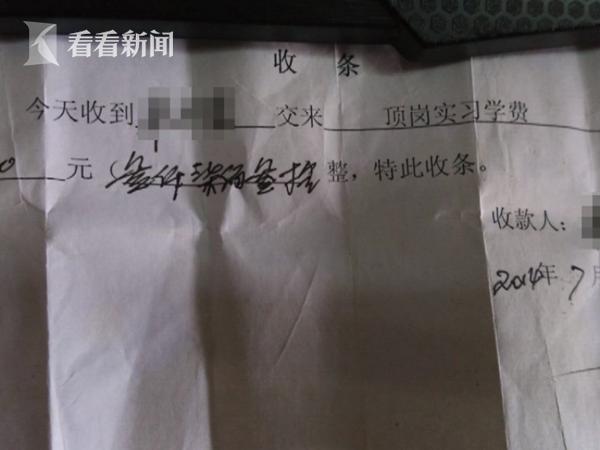 看看新闻
收 条
今天收到 交来 顶岗实习学费
0 元 整，特此收条。
收款人：
2014年 7月